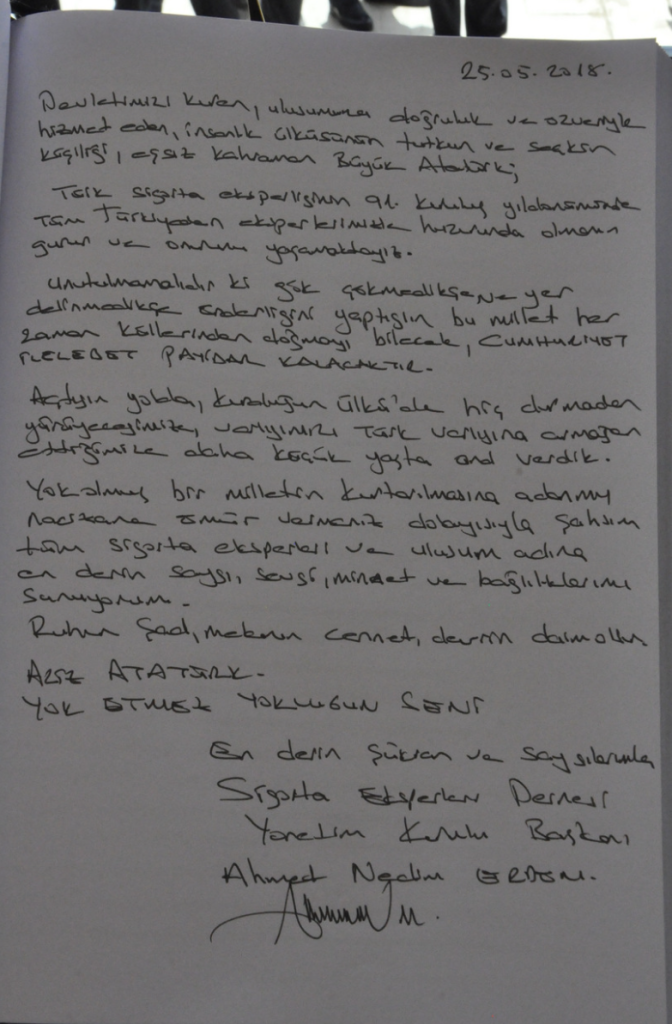 25.05.2018.
Devletimizi kuran, ulusumuza doğruluk ve özveriyle
hizmet eden, insanlık ülküsünün tutkun ve seçkin
kişiliği, eşsiz kahraman Büyük Atatürk;
Türk sigorta eksperliğinin 91. kuruluş yıldönümünde
tüm Türkiyeden eksperlerimizle huzurunda olmanın
gurur ve onurunu yaşamaktayız.
Unutulmamalıdır ki gök çökmedikçe ve yer
delinmedikçe önderliğini yaptığın bu millet her
zaman küllerinden doğmayı bilecek, CUMHURİYET
İLELEBET PAYİDAR KALACAKTIR.
Açtığın yolda, kurduğun ülkü'de hiç durmadan
yürüyeceğimize, varlığımızı Türk varlığına armağan
ettiğimize daha küçük yaşta and verdik.
Yok olmuş bir milletin kurtarılmasına adanmış
naçizane ömür vermeniz dolayısıyla şahsım
tüm sigorta eksperleri ve ulusum adına
en derin saygı, sevgi, minnet ve bağlılıklarımı
sunuyorum.
Ruhun şad, mekanın cennet, devrin daim olsun.
AZİZ ATATÜRK.
YOK ETMEZ YOKLUĞUN SENİ
En derin şükran ve saygılarımla
Sigorta Eksperleri Derneği
Yönetim Kurulu Başkanı
Ahmed Nedim ERDEM.